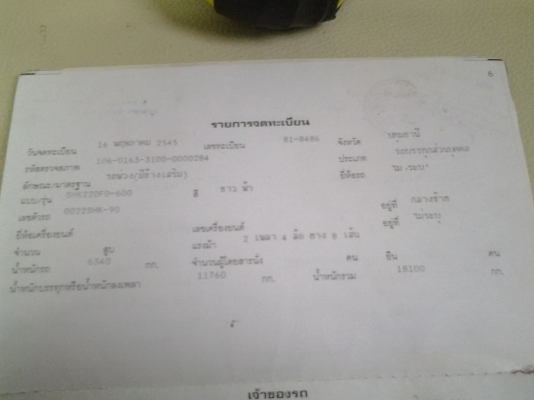 6
รายการจดทะเบียน
วันจดทะเบียน 16 พฤษภาคม 2545 เลขทะเบียน 81-8486 จังหวัด ปทุมธานี
รหัสตรวจสภาพ 106-0163-3100-0000284 ประเภท รถบรรทุกส่วนบุคคล
ลักษณะ/มาตรฐาน รถพ่วง(มีข้างเสริม) ยี่ห้อรถ ไม่ระบุ
แบบ/รุ่น สี ขาว ฟ้า
เลขตัวรถ อยู่ที่ กลางซ้าย
ยี่ห้อเครื่องยนต์ เลขเครื่องยนต์ อยู่ที่ ไม่ระบุ
จำนวน สูบ แรงม้า 2 เพลา 4 ล้อ ยาง 8 เส้น
น้ำหนักรถ 6340 กก. จำนวนผู้โดยสารนั่ง คน ยืน คน
น้ำหนักบรรทุกหรือน้ำหนักลงเพลา 11760 กก. น้ำหนักรวม 18100 กก.
เจ้าของรถ